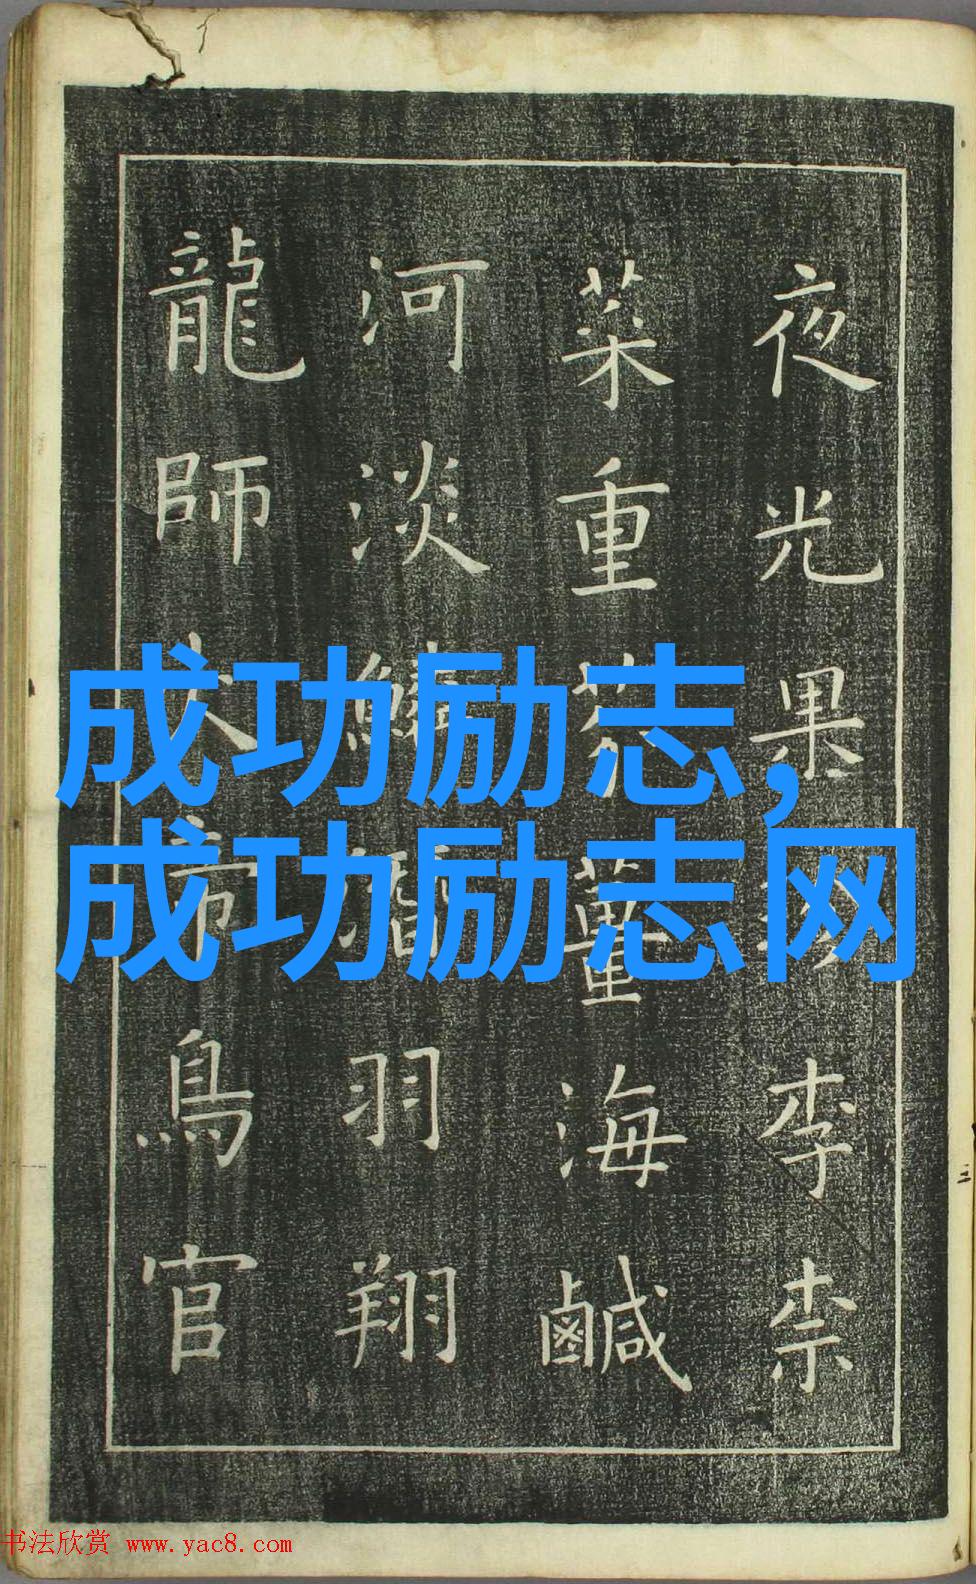 夜光果珍李柰
菜重芥薑海鹹
河淡鱗潛羽翔
龍師火帝鳥官
成功励志,
成功励志网
书法欣赏 www.yac8.com